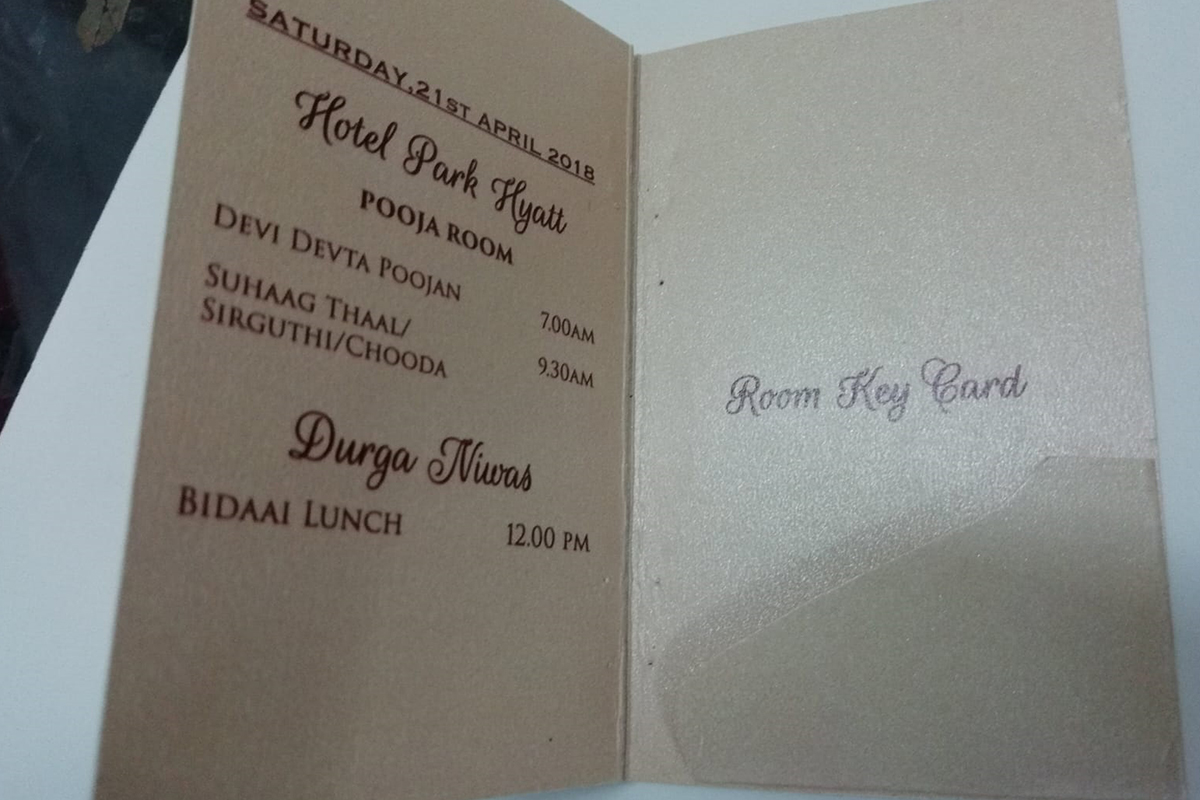 SATURDAY,21ST APRIL 2018
Hotel Park Hyatt
POOJA ROOM
DEVI DEVTA POOJAN 7.00AM
SUHAAG THAAL/
SIRGUTHI/CHOODA 9.30AM
Durga Niwas
BIDAAI LUNCH 12.00 PM
Room Key Card